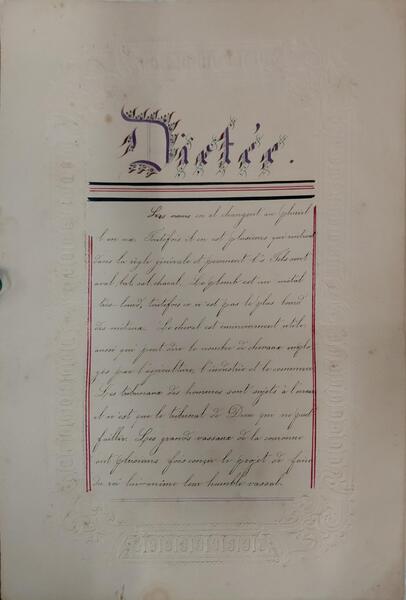 Dictée.
Les noms en al changent au pluriel
l en ux. Toutefois il en est plusieurs qui rentrent
dans la règle générale et prennent l's. Tels sont
aval, bal, cal, chacal. Le plomb est un métal
très lourd, toutefois ce n'est pas le plus lourd
des métaux. Le cheval est universellement utile
aussi qui peut dire le nombre de chevaux emplo-
yés par l'agriculture, l'industrie et le commerce
Les tribunaux des hommes sont sujets à l'erreur
il n'est que le tribunal de Dieu qui ne peut
faillir. Les grands vassaux de la couronne
ont plusieurs fois conçu le projet de faire
du roi lui-même leur humble vassal.